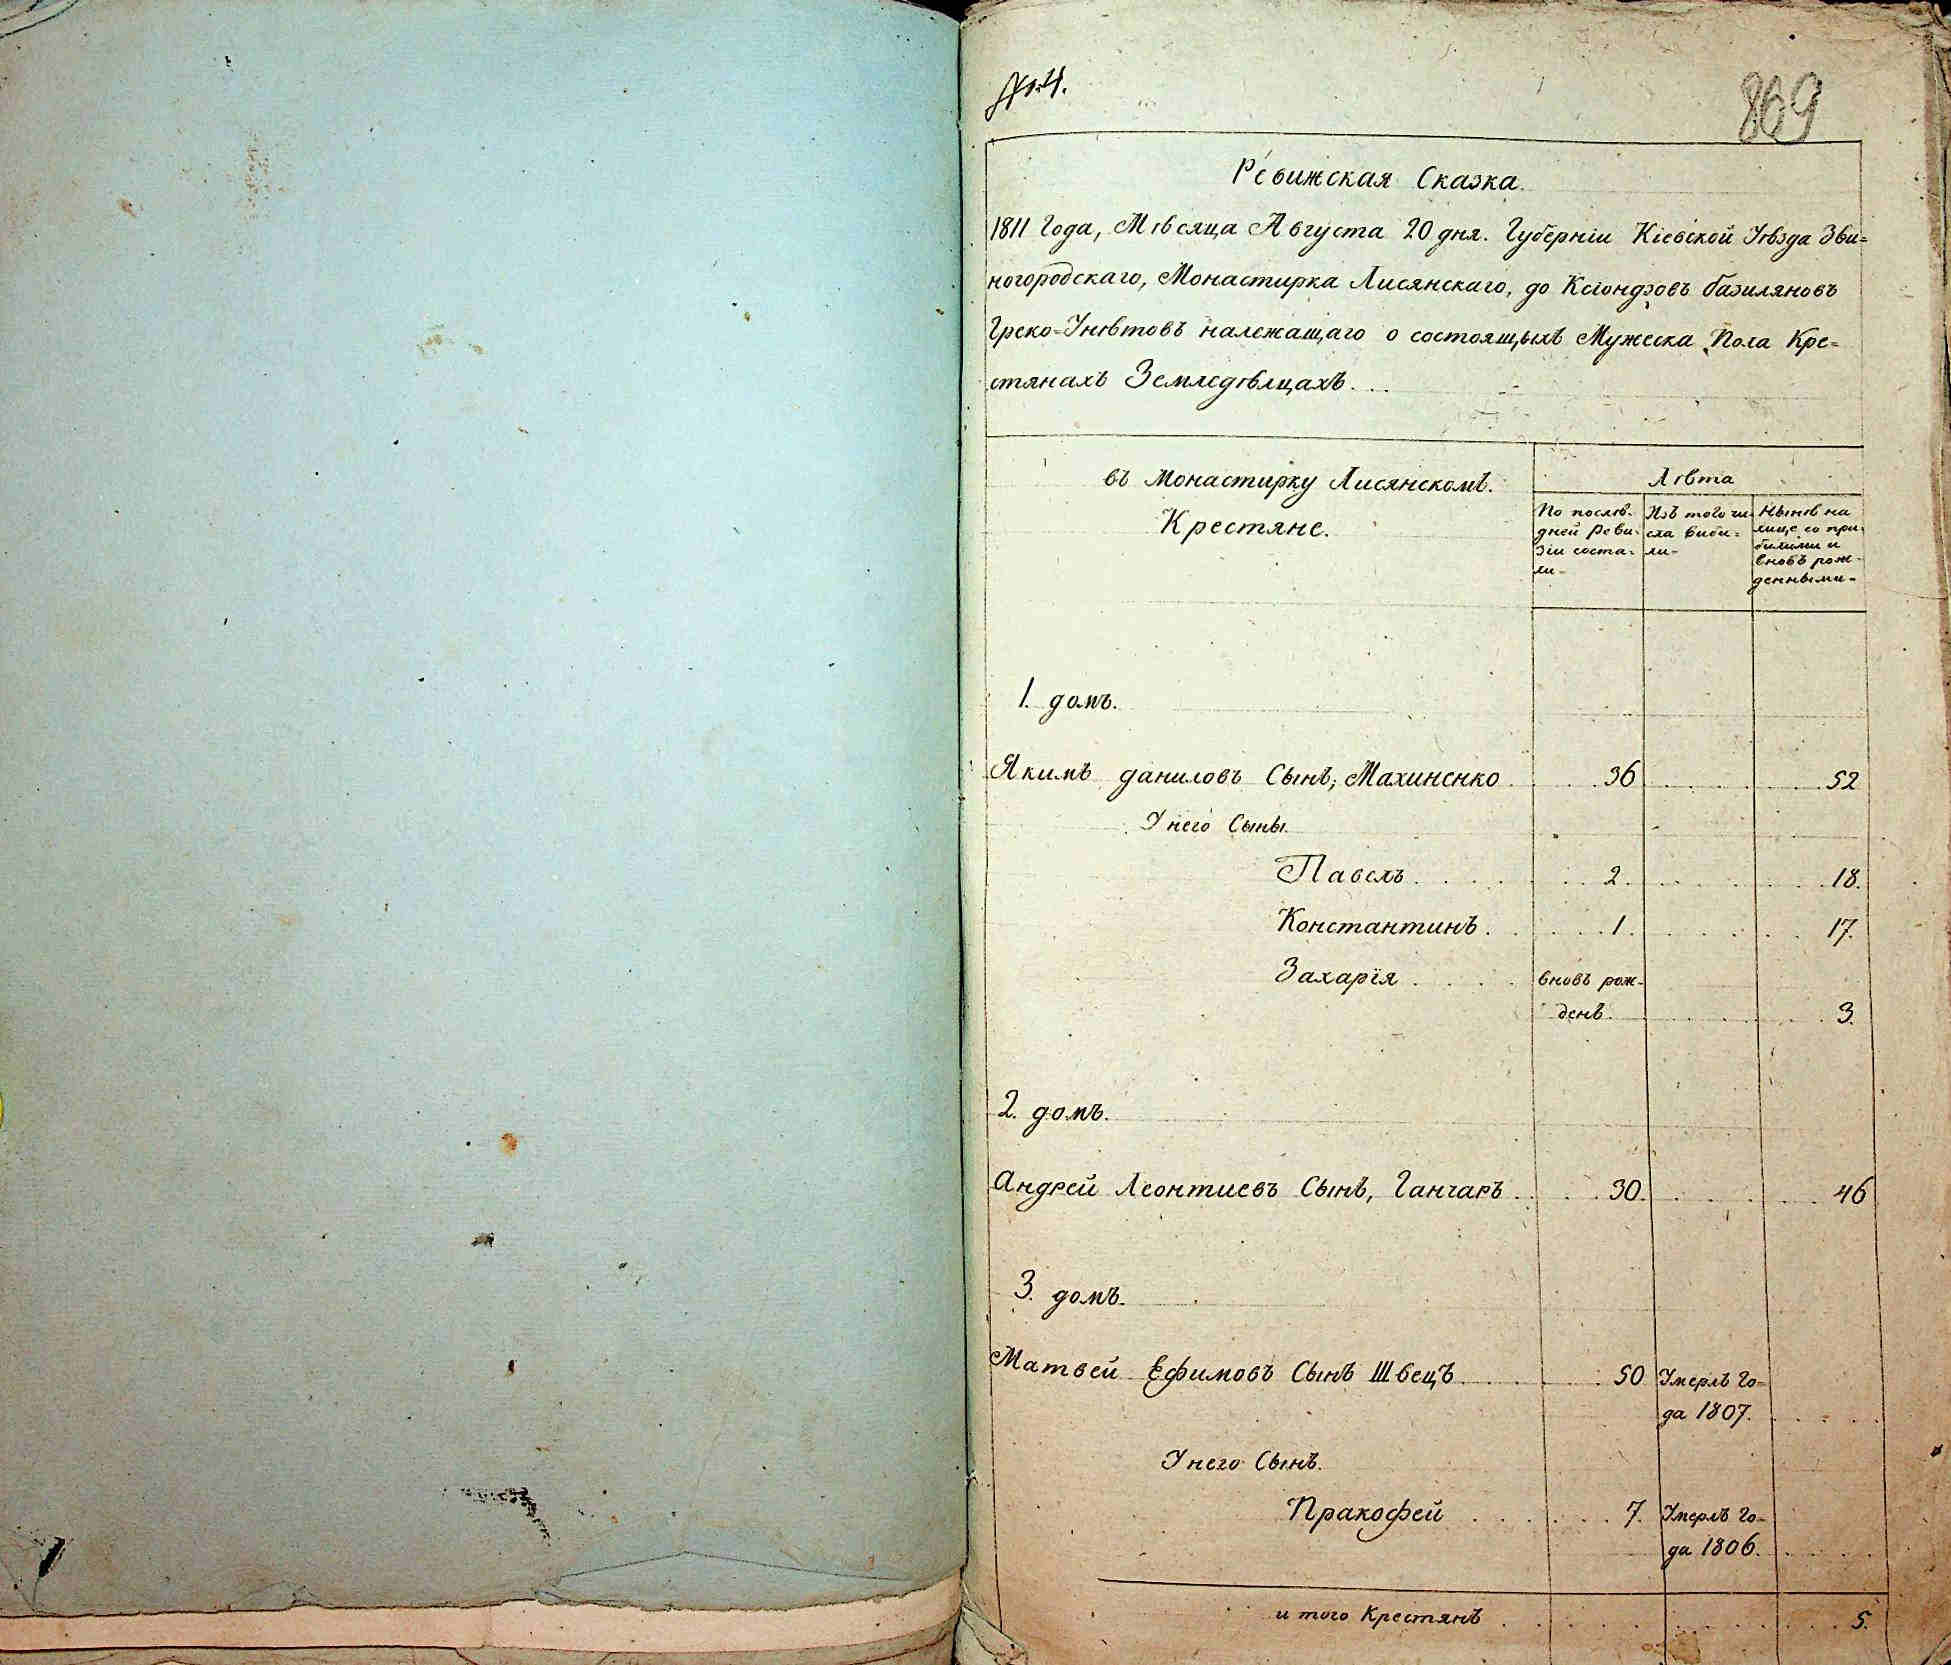 № 4.
869
Ревижская Сказка.
1811 Года, Мѣсяца Августа 20 дня. Губерніи Кіевской Уѣзда Зви=
ногородскаго, Монастирка Лисянскаго, до Ксіондзовъ базиляновъ
Греко=Унѣтовъ належащаго о состоящыхъ Мужеска Пола Кре=
стянахъ Земледѣлцахъ...
въ Монастирку Лисянскомъ.
Крестяне.
Лѣта
По послѣ-
дней Реви-
зіи соста-
ли-
Изъ того чи-
сла виби-
ли-
Нынѣ на
лице со при-
билими и
вновь рож-
денными-
1. домъ.
Якимъ даниловъ Сынъ, Махиненко . . . 36 . . . 52
У него Сыны.
Павелъ . . . 2 . . . 18.
Константинъ . . . 1 . . . 17.
Захарія . . . вновь рож-
денъ . . . 3.
2. домъ.
Андрей Леонтиевъ Сынъ, Ганчаръ . . . 30 . . . 46
3. домъ.
Матвей Ефимовъ Сынъ Швецъ . . . 50 Умерлъ Го-
да 1807.
У него Сынъ.
Пракофей . . . 7. Умерлъ Го-
да 1806.
и того Крестянъ . . . 5.